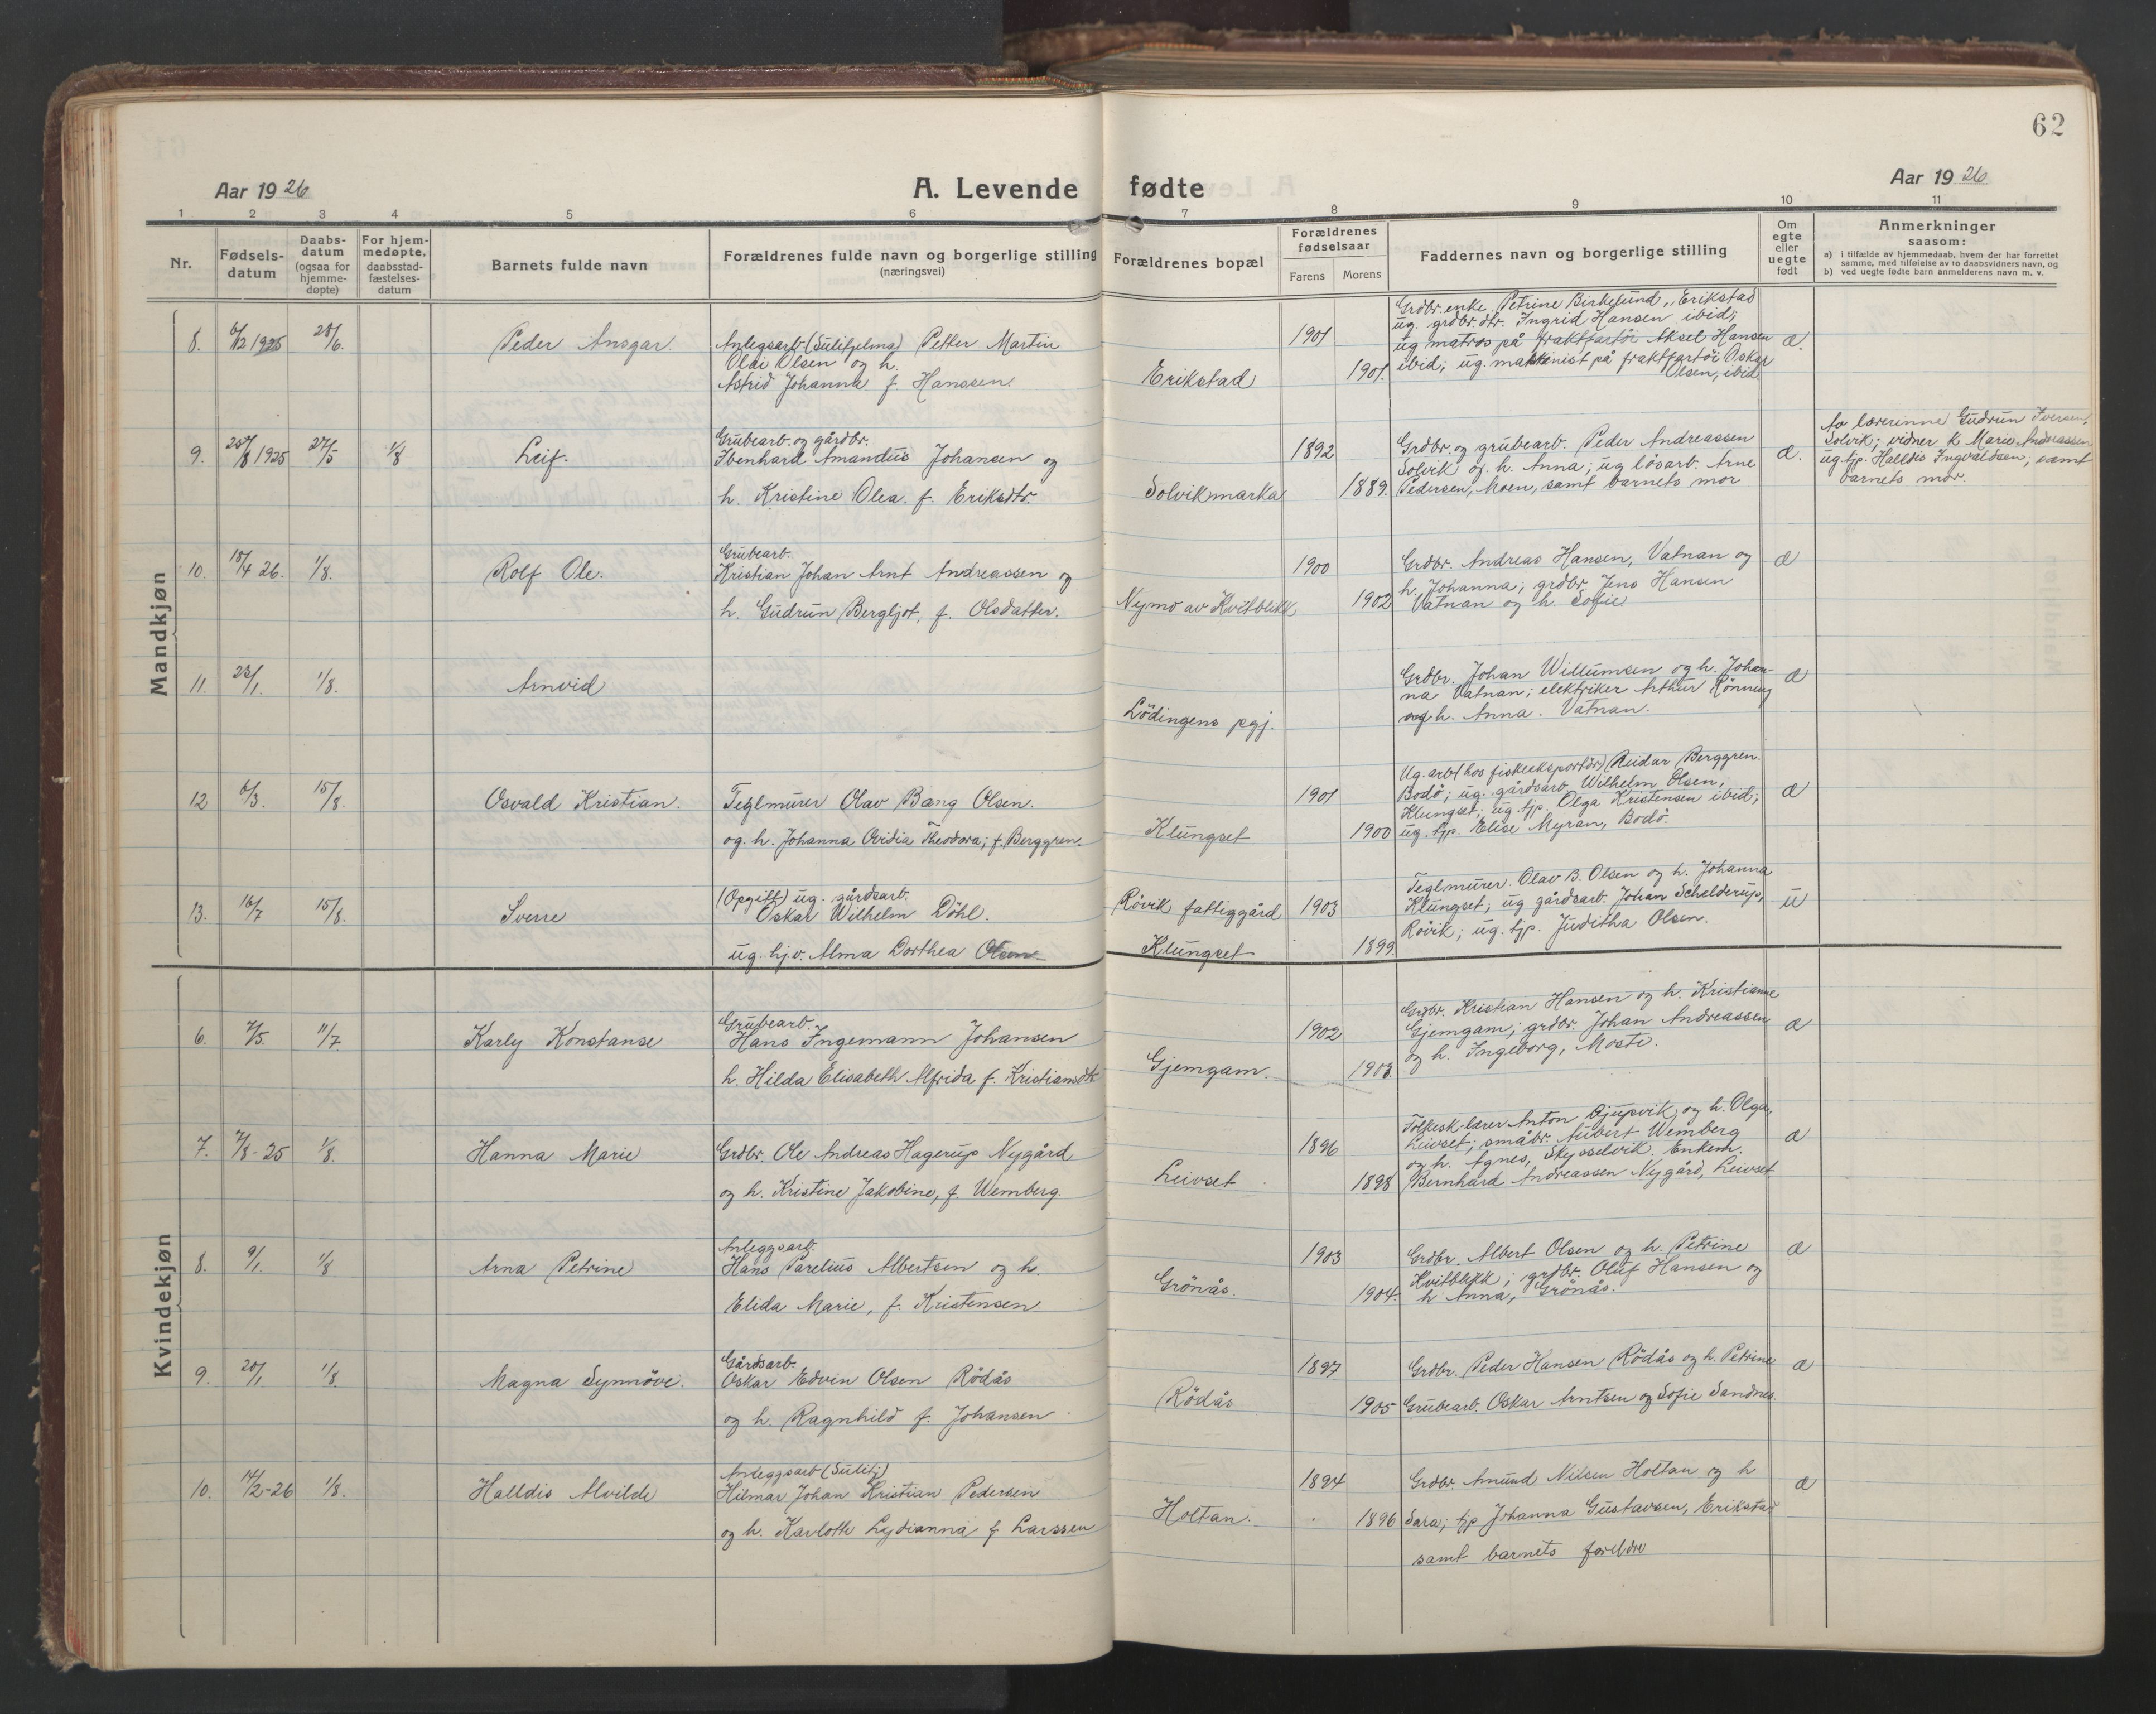 62
Aar 1926
A. Levende fødte
Aar 1926
1 2 3 4 5 6 7 8 9 10 11
Nr.
Fødsels-
datum
Daabs-
datum
(ogsaa for
hjemme-
døpte)
For hjem-
medøpte.
daabsstad-
fæstelses-
datum
Barnets fulde navn
Forældrenes fulde navn og borgerlige stilling
(næringsvei)
Forældrenes bopæl
Forældrenes
fødselsaar
Farens Morens
Faddernes navn og borgerlige stilling
Om
egte
eller
uegte
født
Anmerkninger
saasom:
a) i tilfælde av hjemmedaab, hvem der har forrettet
samme, med tilføielse av to daabsvidners navn, og
b) ved uegte fødte barn anmelderens navn m. v.
Mandkjøn
8. 6/12 1925 20/6.
Peder Ansgar.
Anlegsarb. (Sulitjelma) Petter Martin
Oldi Olsen og h.
Astrid Johanna f. Hanssen.
Erikstad
1901
1901.
Grdbr. enke Petrine Birkelund, Erikstad
ug. grdbr. dtr. Ingrid Hansen ibid;
ug matros på fraktfartöi Aksel Hansen
ibid; ug. maskinist på fraktfartöi Oskar
Olsen, ibid.
æ.
9. 25/8 1925 27/5 1/8
Leif.
Grubearb. og gårdbr.
Ibenhard Amandus Johansen og
h. Kristine Olea f. Eriksdtr.
Solvikmarka
1892
1889.
Grdbr. og grubearb. Peder Andreassen
Solvik og h. Anna; ug lösarb. Arne
Pedersen, Moen, samt barnets mor
æ.
Av lærerinne Gudrun Iversen,
Solvik; vidner k Marie Andreassen
ug. tjp. Halldis Ingvaldsen, samt
barnets mor.
10. 18/4 26. 1/8.
Rolf Ole.
Grubearb.
Kristian Johan Arnt Andreassen og
h. Gudrun Bergljot, f. Olsdatter.
Nymo av Kvitblikk
1900
1902
Grdbr. Andreas Hansen, Vatnan og
h. Johanna; grdbr. Jens Hansen
Vatnan og h. Sofie
æ
11. 23/1. 1/8.
Arnvid
Lödingens pgj.
Grdbr. Johan Willumsen og h. Johan-
na Vatnan; elektriker Arthur Rönning
og h. Anna. Vatnan.
æ
12 6/3. 15/8.
Osvald Kristian.
Teglmurer Olav Bang Olsen.
og. h. Johanna Ovidia Theodora; f. Berggren.
Klungset
1901
1900
Ug. arb (hos fiskeeksportör) Reidar Berggren.
Bodö; ug. gårdsarb. Wilhelm Olsen;
Klungset; ug. tjp. Olga Kristensen ibid;
ug. tjp. Elise Myran, Bodö.
æ
13. 16/7 15/8.
Sverre
(Opgitt) ug. gårdsarb.
Oskar Wilhelm Döhl.
ug. hj.v. Alma Dorthea Olsen
Rövik fattiggård
Klungset
1903
1899.
Teglmurer. Olav B. Olsen og h. Johanna
Klungset; ug gårdsarb. Johan Schelderup,
Røvik; ug. tjp. Juditha Olsen.
u
Kvindekjøn
6. 7/5. 11/7
Karly Konstanse
Grubearb.
Hans Ingemann Johansen
h. Hilda Elisabeth Alfrida f. Kristiansdtr
Gjemgam.
1902
1903.
Grdbr. Kristian Hansen og h. Kristianne
Gjemgam; grdbr. Johan Andreassen
og h. Ingeborg, Mosti.
æ
7. 7/8-25 1/8.
Hanna Marie
Grdbr. Ole Andreas Hagerup Nygård
og h. Kristine Jakobine, f. Wemberg.
Leivset
1896
1898
Folkesk-lærer Anton Djupvik og h. Olga,
Leivset; småbr. Aubert Wemberg
og h. Agnes, Skysselvik. Enkem.
Bernhard Andreassen Nygård, Leivset
æ
8. 9/1. 1/8
Arna Petrine
Anleggsarb.
Hans Parelius Albertsen og h.
Elida Marie, f. Kristensen
Grönås.
1903
1904.
Grdbr. Albert Olsen og h. Petrine
Kvitblikk; grdbr. Oluf Hansen og
h Anna, Grönås.
æ
9. 20/1 1/8.
Magna Synnöve.
Gårdsarb.
Oskar Edvin Olsen Rödås
og h. Ragnhild f. Johansen
Rödås
1897
1905
Grdbr. Peder Hansen Rödås og h. Petrine
Grubearb. Oskar Arntsen og Sofie Sandnes.
æ
10. 14/2-26 1/8.
Halldis Alvilde
Anleggsarb (Sulitj)
Hilmar Johan Kristian Pedersen
og h. Karlotte Lydianna f Larssen
Holtan.
1894
1896
Grdbr. Amund Nilsen Holtan og h
Sara; tjp Johanna Gustavsen, Erikstad
samt barnets foreldre
æ